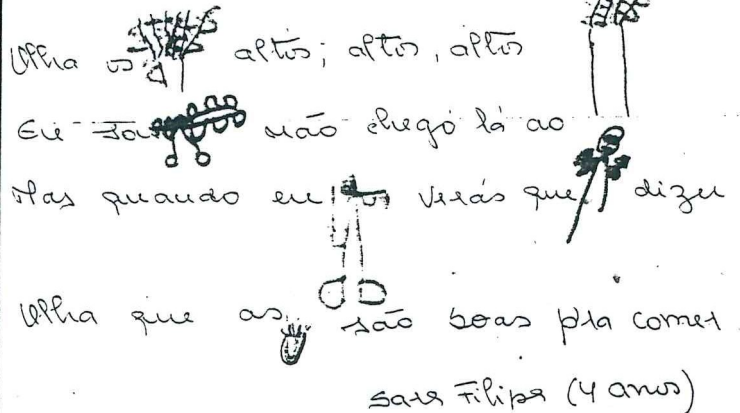 Olha os altos; altos, altos
Eu sou não chego lá ao
Mas quando eu verás que dizer
Olha que as são boas pra comer
Sara Filipa (4 anos)